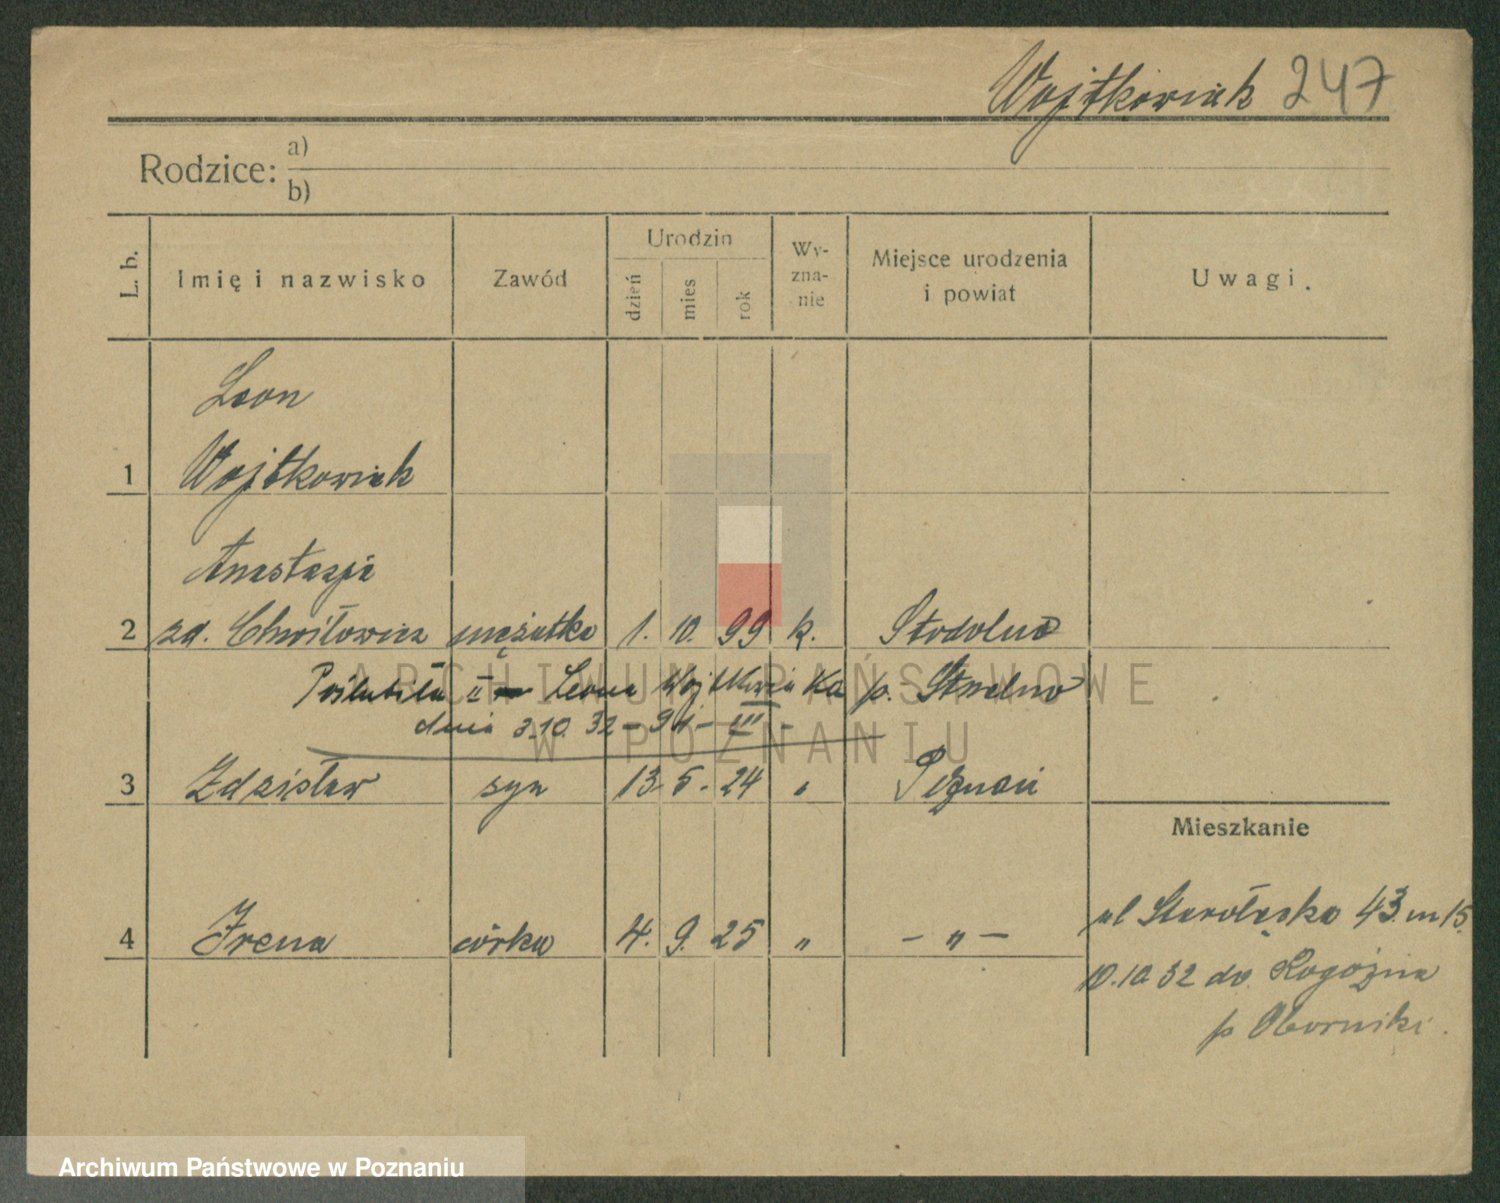 Wojtkowiak 247
Rodzice: a)
b)
L. b. Imię i nazwisko Zawód Urodzin dzień mies rok Wy-zna-nie Miejsce urodzenia i powiat Uwagi.
Leon
1 Wojtkowiak
Anastazja
2 zd. Chwiłowicz mężatka 1. 10. 99 k. Stodolno
Poślubiła II Leona Wojtkowiaka p. Strzelno
dnia 3.10 32 – – III –
3 Zdzisław syn 13. 5. 24 „ Poznań
Mieszkanie
ul Starołęska 43. m 15.
4 Irena córka 4. 9. 25 „ – „ –
10.10 32 do Rogoźna
p Oborniki.
ARCHIWUM PAŃSTWOWE
W POZNANIU
Archiwum Państwowe w Poznaniu